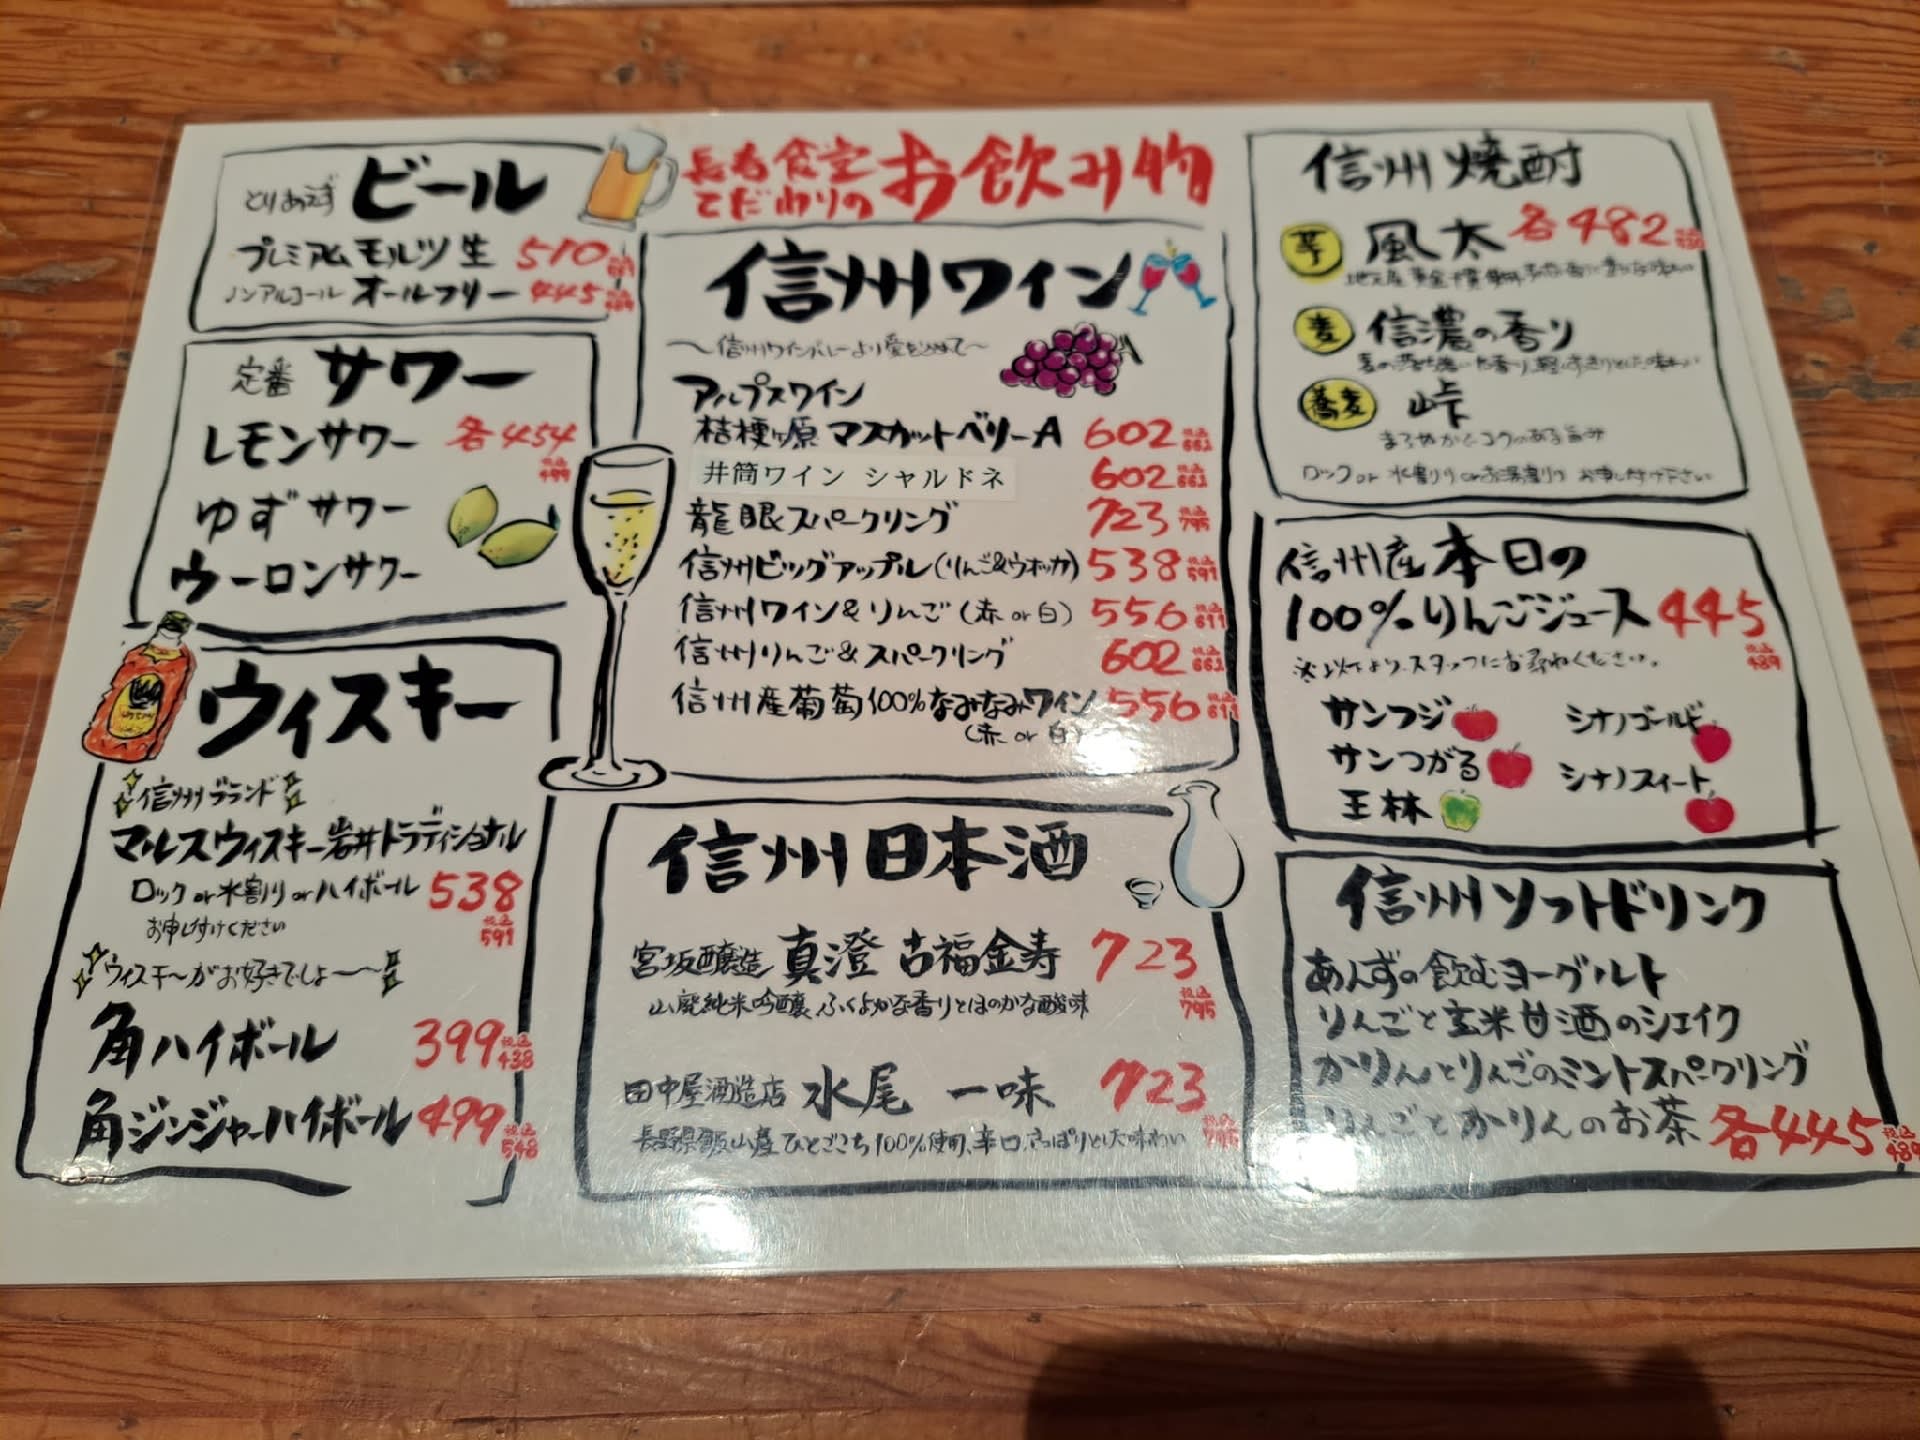 長寿食堂
こだわりの お飲み物
とりあえず ビール
プレミアムモルツ生 510
ノンアルコール オールフリー 445
定番 サワー
レモンサワー 各454
税込
499
ゆずサワー
ウーロンサワー
ウィスキー
信州ブランド
マルスウィスキー岩井トラディショナル
ロック or 水割り or ハイボール 538
お申し付けください 税込
591
ウィスキ〜がお好きでしょ〜〜
角ハイボール 399 税込 438
角ジンジャーハイボール 499 税込 548
信州ワイン
〜信州ワインバレーより愛を込めて〜
アルプスワイン
桔梗ヶ原 マスカットベリーA 602 税込 662
井筒ワイン シャルドネ 602 税込 662
龍眼スパークリング 723 税込 795
信州ビッグアップル(りんご&ウォッカ) 538 税込 591
信州ワイン&りんご(赤 or 白) 556 税込 611
信州りんご&スパークリング 602 税込 662
信州産葡萄100%なみなみワイン 556 税込 611
(赤 or 白)
信州日本酒
宮坂醸造 真澄 吉福金寿 723
税込
795
山廃純米吟醸、ふくよかな香りとほのかな酸味
田中屋酒造店 水尾 一味 723
税込
795
長野県飯山産ひとごこち100%使用、辛口、さっぱりとした味わい
信州焼酎
芋 風太 各482
麦 信濃の香り
蕎麦 峠
まろやかでコクのある旨み
ロック or 水割り or お湯割り お申し付け下さい
信州産 本日の
100%りんごジュース 445
税込
489
※以下より、スタッフにお尋ねください。
サンフジ シナノゴールド
サンつがる シナノスイート
王林
信州ソフトドリンク
あんずの飲むヨーグルト
りんごと玄米甘酒のシェイク
かりんとりんごのミントスパークリング
りんごとかりんのお茶 各445 税込 489